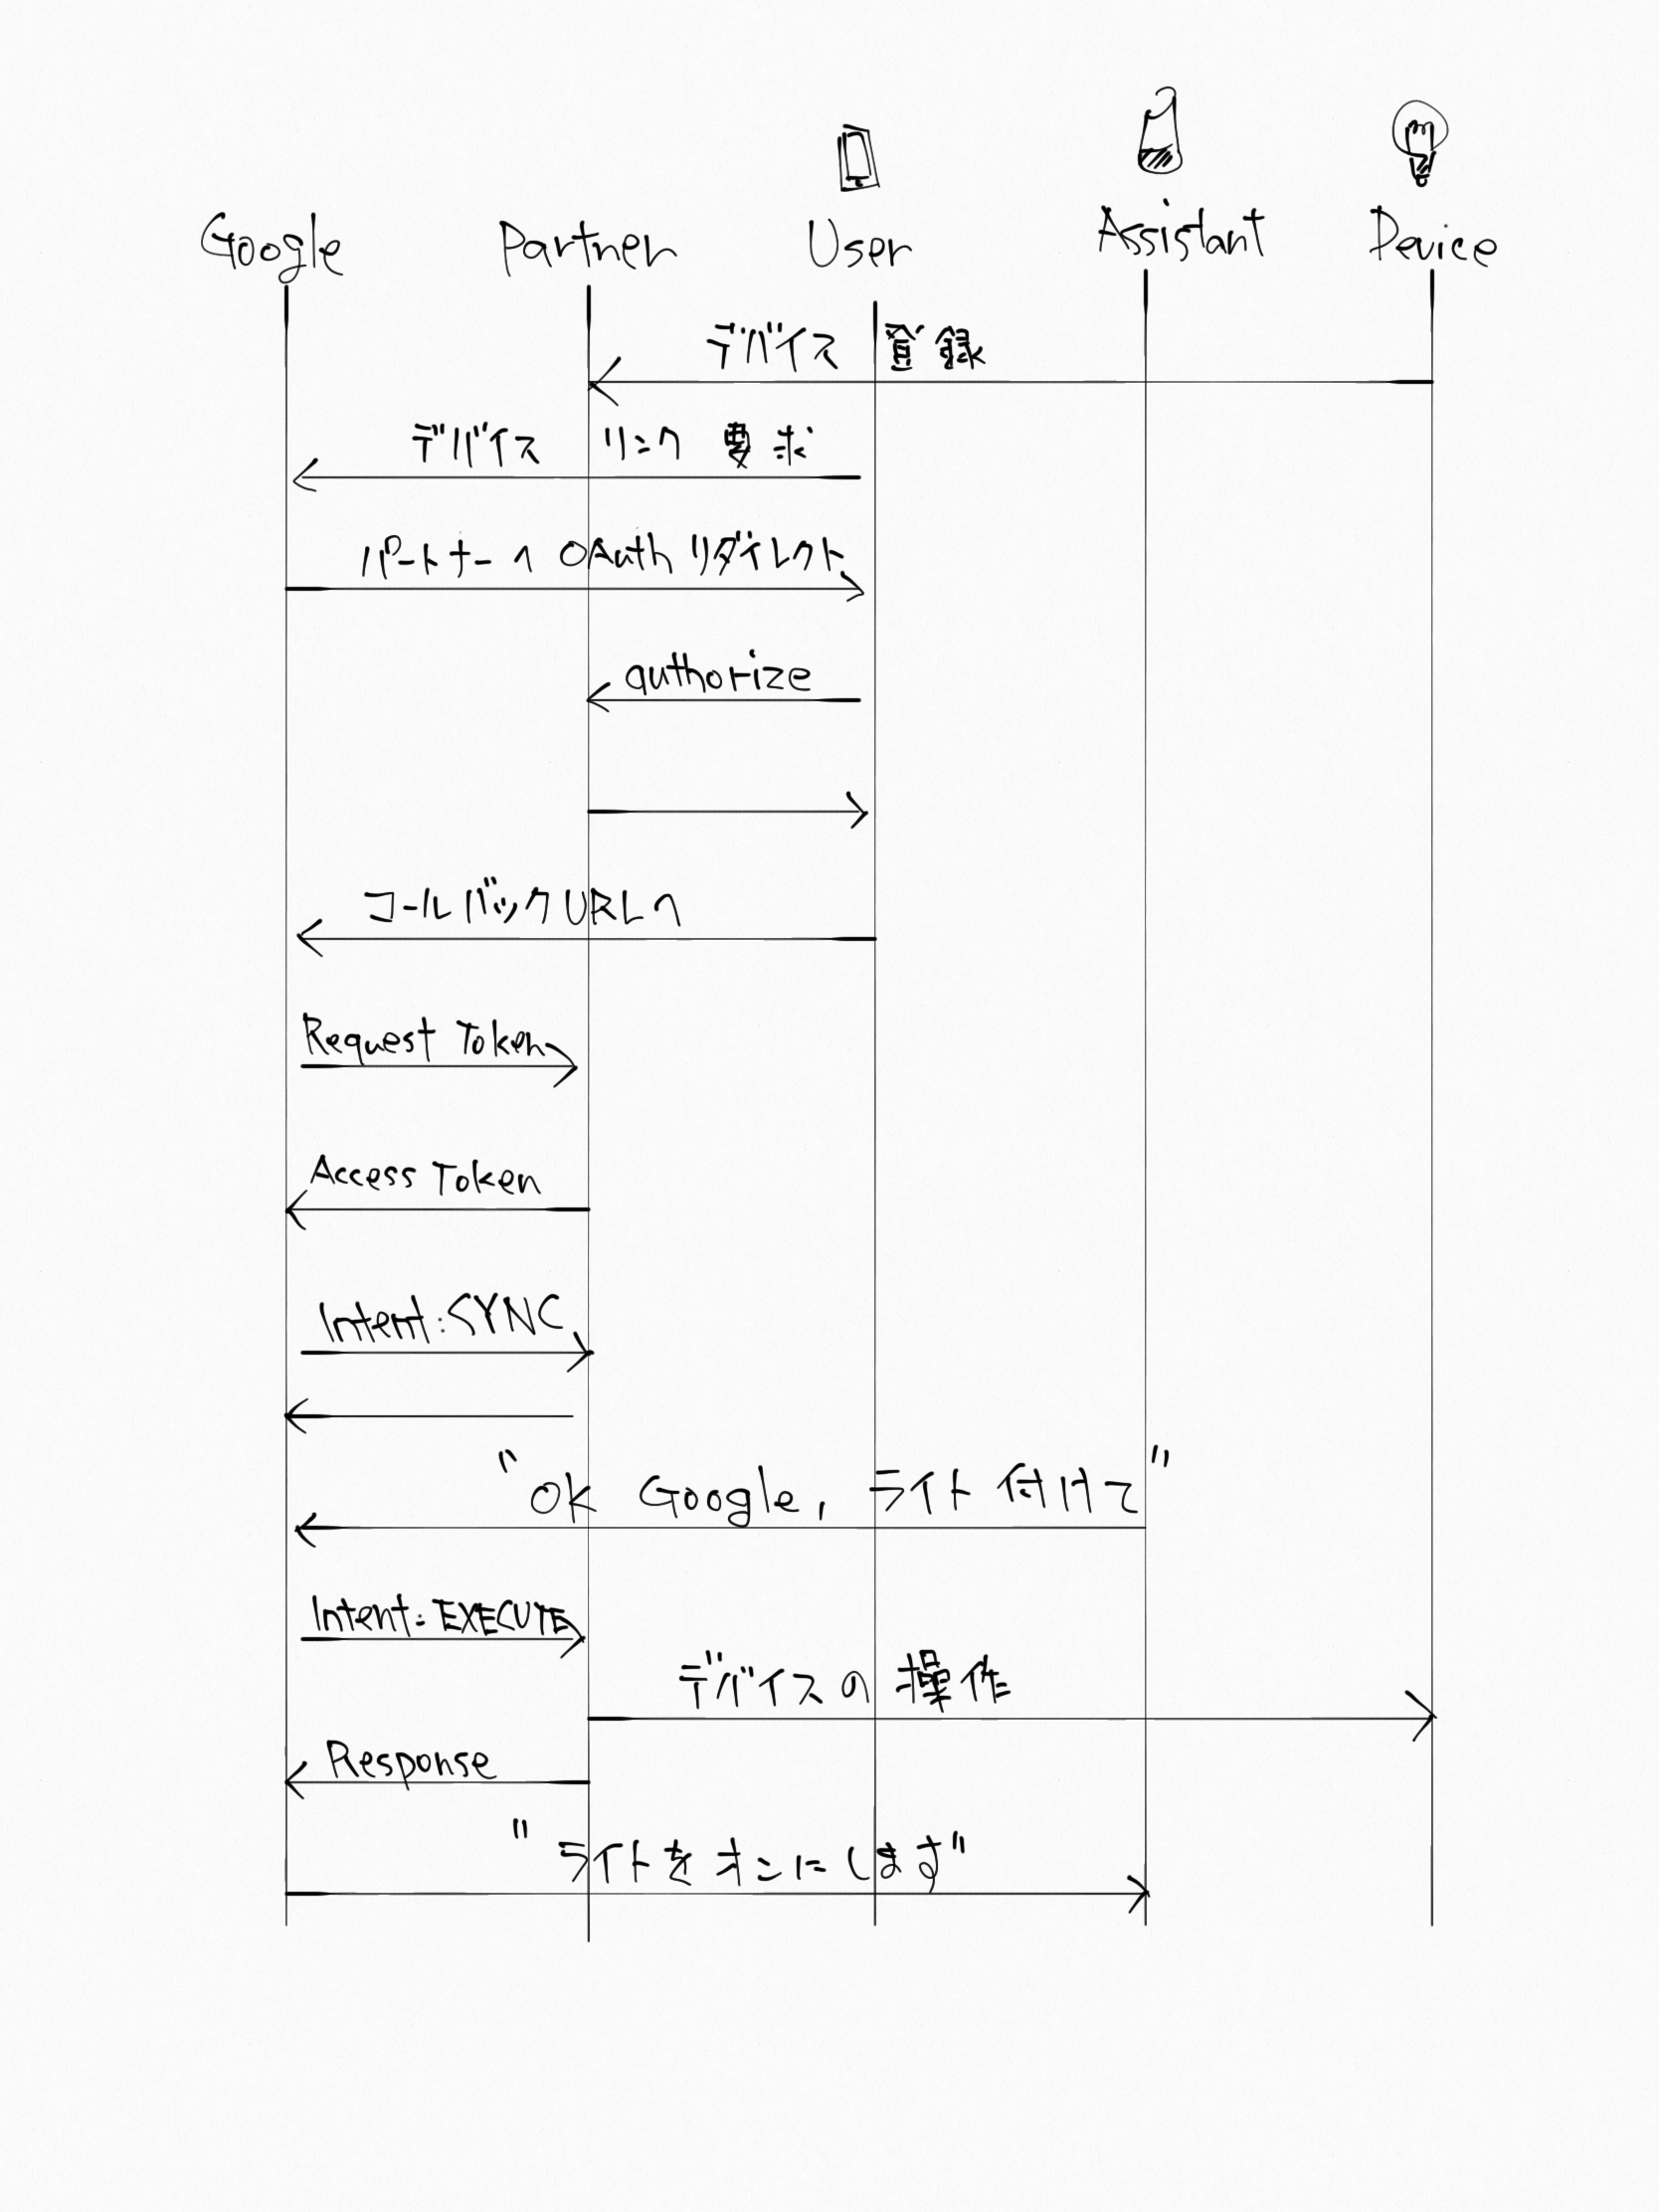 Google Partner User Assistant Device
デバイス 登録
デバイス リンク 要求
パートナーへ OAuth リダイレクト
authorize
コールバックURLへ
Request Token
Access Token
Intent:SYNC
"OK Google, ライト付けて"
Intent:EXECUTE
デバイスの操作
Response
"ライトをオンにします"